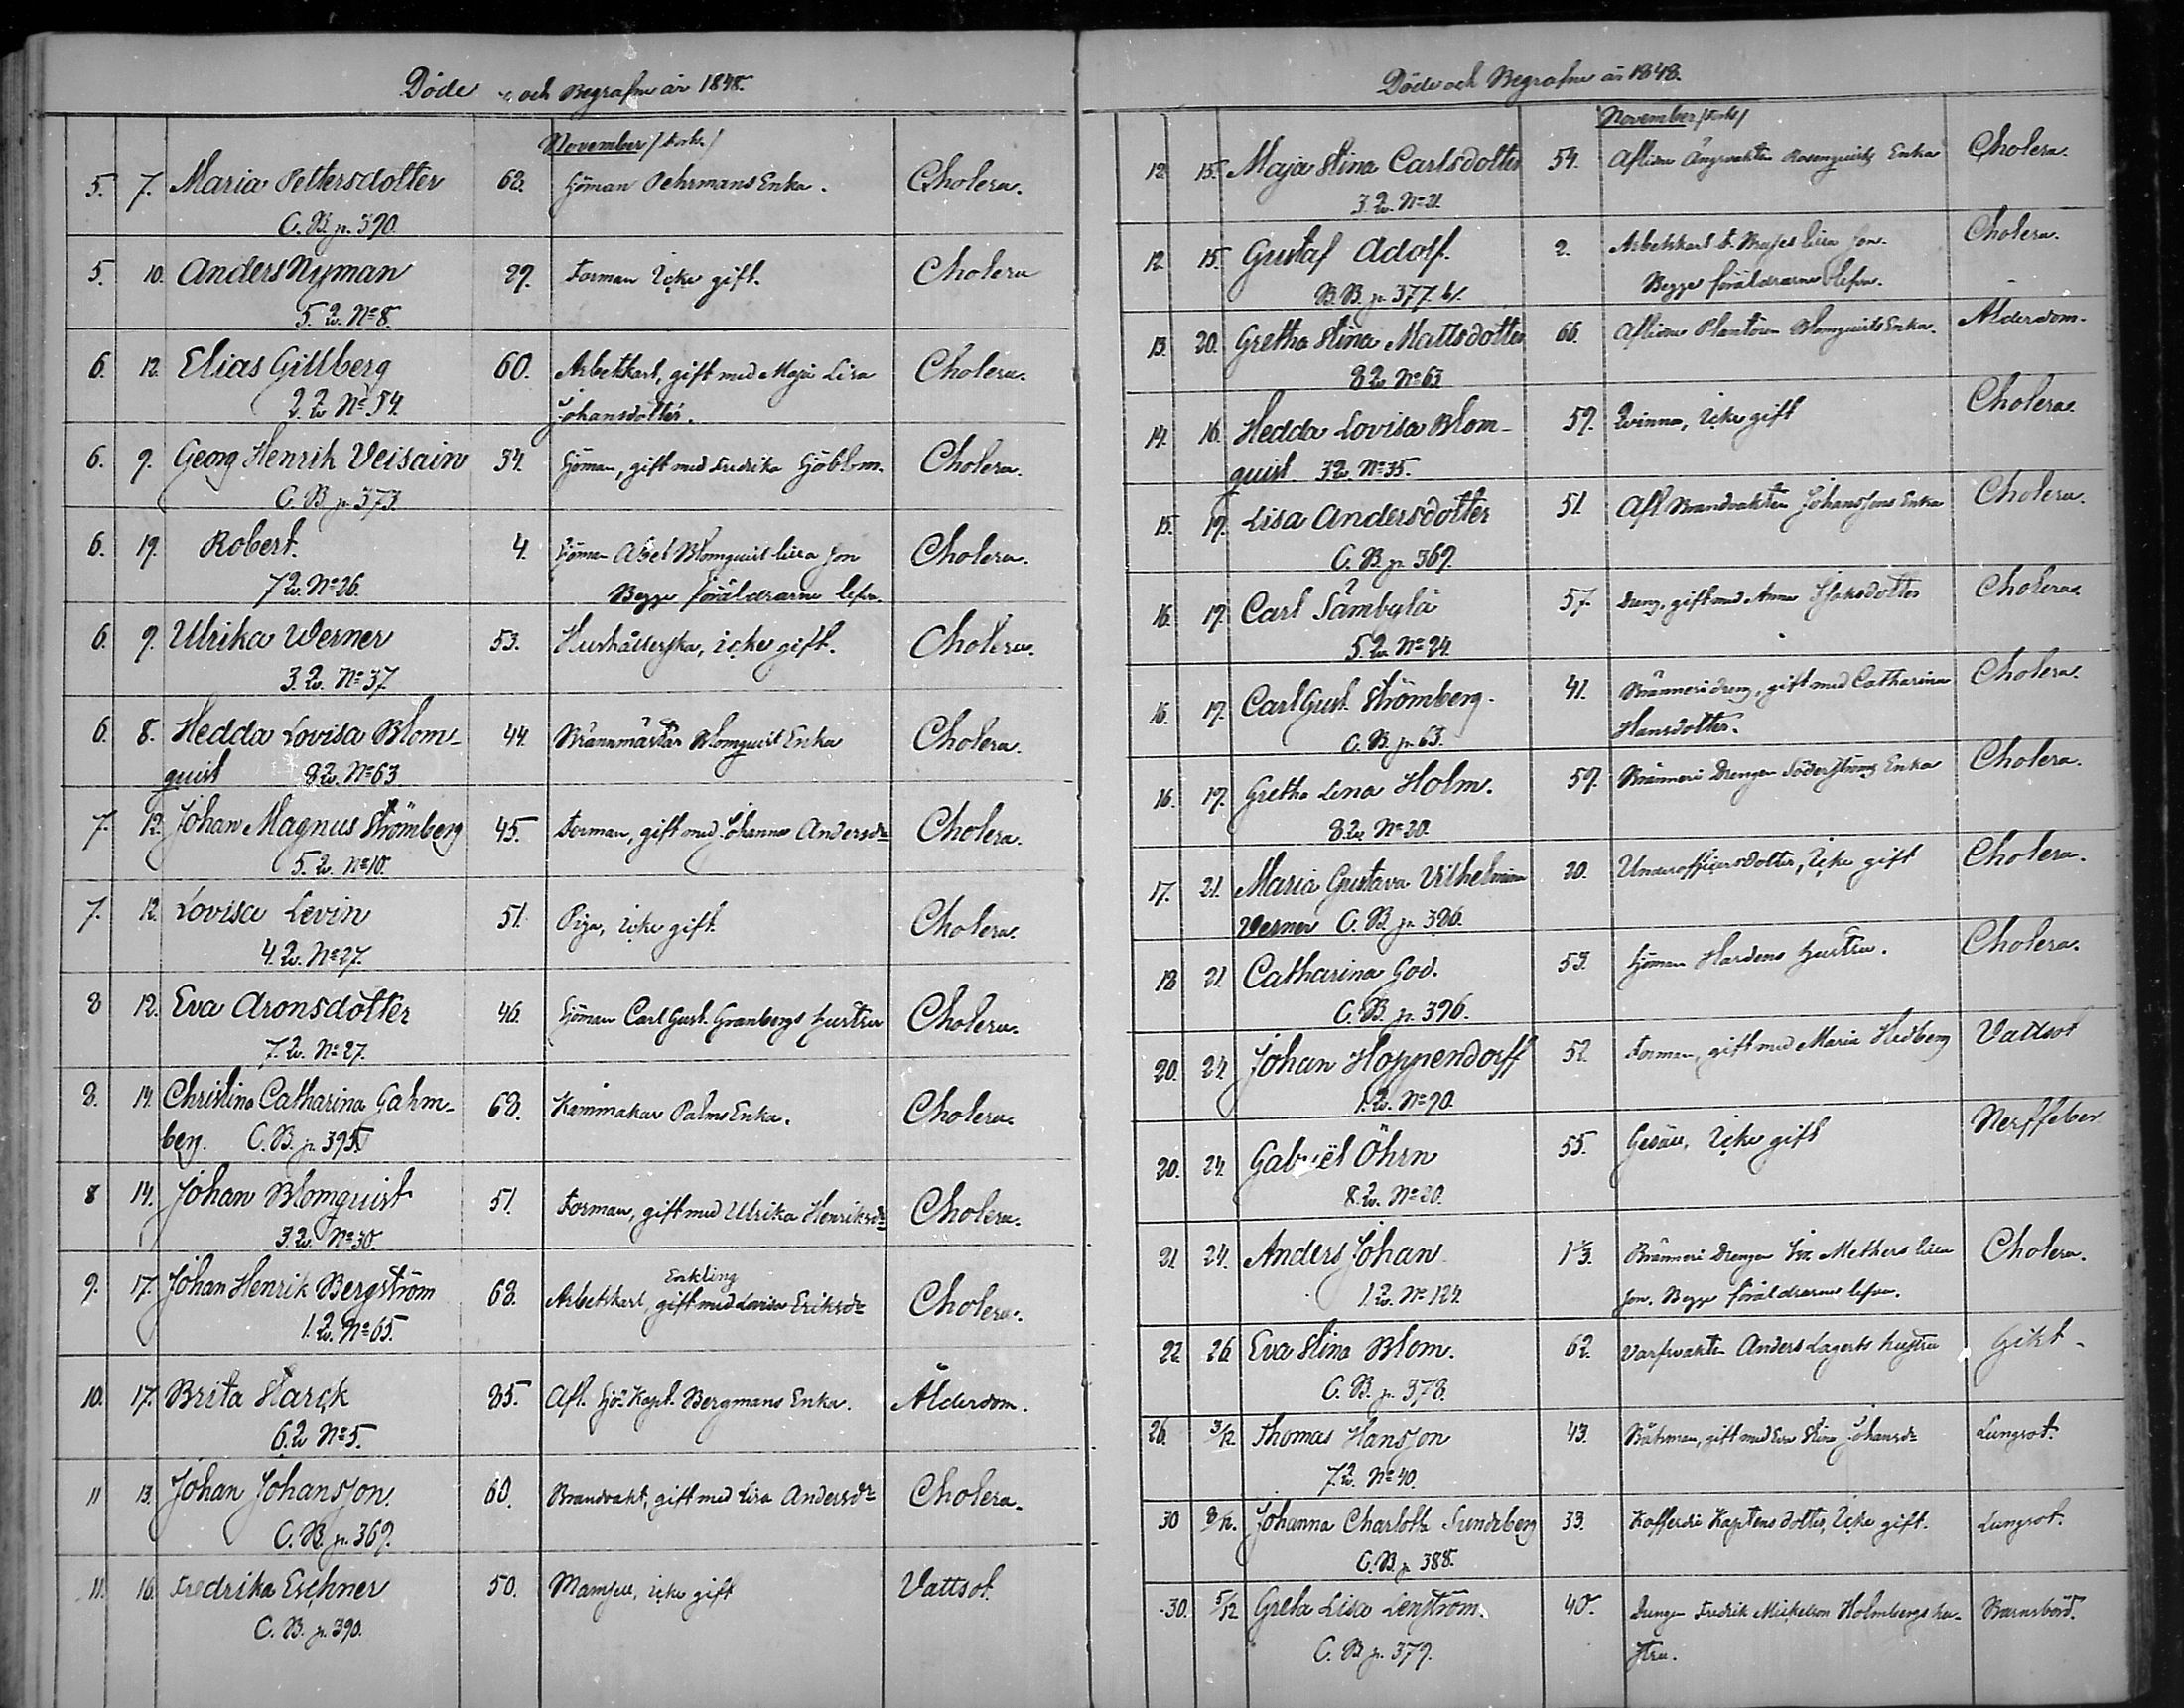 Döde och Begrafne år 1848.
November /forts./
5. 7. Maria Pettersdotter 68. Sjöman Pehrmans Enka. Cholera.
C. B. p. 390.
5. 10. Anders Nyman 29. Forman Icke gift. Cholera
5. Qv. No 8.
6. 12. Elias Gillberg 60. Arbetskarl, gift med Maja Lisa Cholera.
2. Qv. No 54. Johansdotter.
6. 9. Georg Henrik Veisain 34. Sjöman, gift med Fredrika Sjöblom. Cholera.
C. B. p. 373.
6. 19. Robert. 4. Sjöman Abel Blomquist lilla Son Cholera.
7 Qv. No 26. Begge föräldrarne lefva.
6. 9. Ulrika Werner 53. Hushållerska, icke gift. Cholera.
3. Qv. No 37.
6. 8. Hedda Lovisa Blom- 44. Brännmästar Blomquist Enka Cholera.
quist 8 Qv. No 63
7. 12. Johan Magnus Strömberg 45. Forman, gift med Johanna Andersdr Cholera.
5. Qv. No 10.
7. 12. Lovisa Levin 51. Piga, icke gift. Cholera.
4. Qv. No 27.
8 12. Eva Aronsdotter 46. Sjöman Carl Gust. Granbergs hustru Cholera.
7. Qv. No 27.
8. 14. Christina Catharina Gahm- 68. Kammakar Palms Enka. Cholera.
berg. C. B. p. 395.
8 14. Johan Blomquist 51. Forman, gift med Ulrika Henriksdr Cholera.
3. Qv. No 30.
Enkling
9. 17. Johan Henrik Bergström 68. Arbetskarl, gift med Lovisa Eriksdr Cholera.
1. Qv. No 65.
10. 17. Brita Starck 85. Afl. Sjö-Kapt. Bergmans Enka. Ålderdom.
6. Qv No 5.
11 13. Johan Johansson. 60. Brandvakt, gift med Lisa Andersdr Cholera.
C. B. p. 369.
11. 16. Fredrika Eschner 50. Mamsell, icke gift Vattsot.
C. B. p. 390.
Döde och Begrafne år 1848.
November /forts/
12. 15. Maja Stina Carlsdotter 54. Aflidne Rosenquists Enka Cholera.
3. Qv. No 21.
12. 15. Gustaf Adolf. 2. Arbetskarl lilla Son. Cholera.
B. B. p. 377. Begge föräldrarne lefva.
13. 20. Gretha Stina Mattsdotter 66. Aflidne Blomquists Enka. Ålderdom.
8 Qv No 63
14. 16. Hedda Lovisa Blom- 59. Qvinna, Icke gift Cholera.
quist 3 Qv. No 35.
15. 19. Lisa Andersdotter 51. Afl Brandvakten Johanssons Enka Cholera.
C. B. p. 369.
16. 19. Carl Sambylä 57. Dreng, gift med Anna Isaksdotter Cholera.
5 Qv. No 24.
16. 19. Carl Gust. Strömberg. 41. Bränneridreng, gift med Catharina Cholera.
C. B. p. 63. Hansdotter.
16. 19. Gretha Lena Holm. 59. Bränneri Drengen Söderströms Enka Cholera.
8 Qv. No 20.
17. 21. Maria Gustava Vilhelmina 20. Underofficersdotter, Icke gift Cholera.
Verner C. B. p. 396.
18 21. Catharina God. 53. Sjöman Hardens hustru. Cholera.
C. B. p. 396.
20. 24. Johan Hoppendorff 52. Forman, gift med Maria Hedberg Vattsot
1. Qv. No 90.
20. 24. Gabriel Öhrn 55. Gesäll, Icke gift Nerffeber
8. Qv. No 20.
21. 24. Anders Johan 1 1/3. Bränneri Drengen Methers lilla Cholera.
1. Qv. No 124. Son. Begge föräldrarne lefva.
22. 26. Eva Stina Blom. 62. Varfsvakten Anders Lagerts hustru Gikt.
C. B. p. 378.
26. 3/12. Thomas Hansson 43. Båtsman, gift med Eva Stina Johansdr Lungsot.
7. Qv. No 40.
30 8/12. Johanna Charlotta Sundberg 33. Kofferdi Kaptens dotter, Icke gift. Lungsot.
C. B. p. 388.
30. 5/12 Greta Lisa Lenström. 40. Drengen Fredrik Mickelson Holmbergs hu- Barnsbörd.
C. B. p. 379. stru.